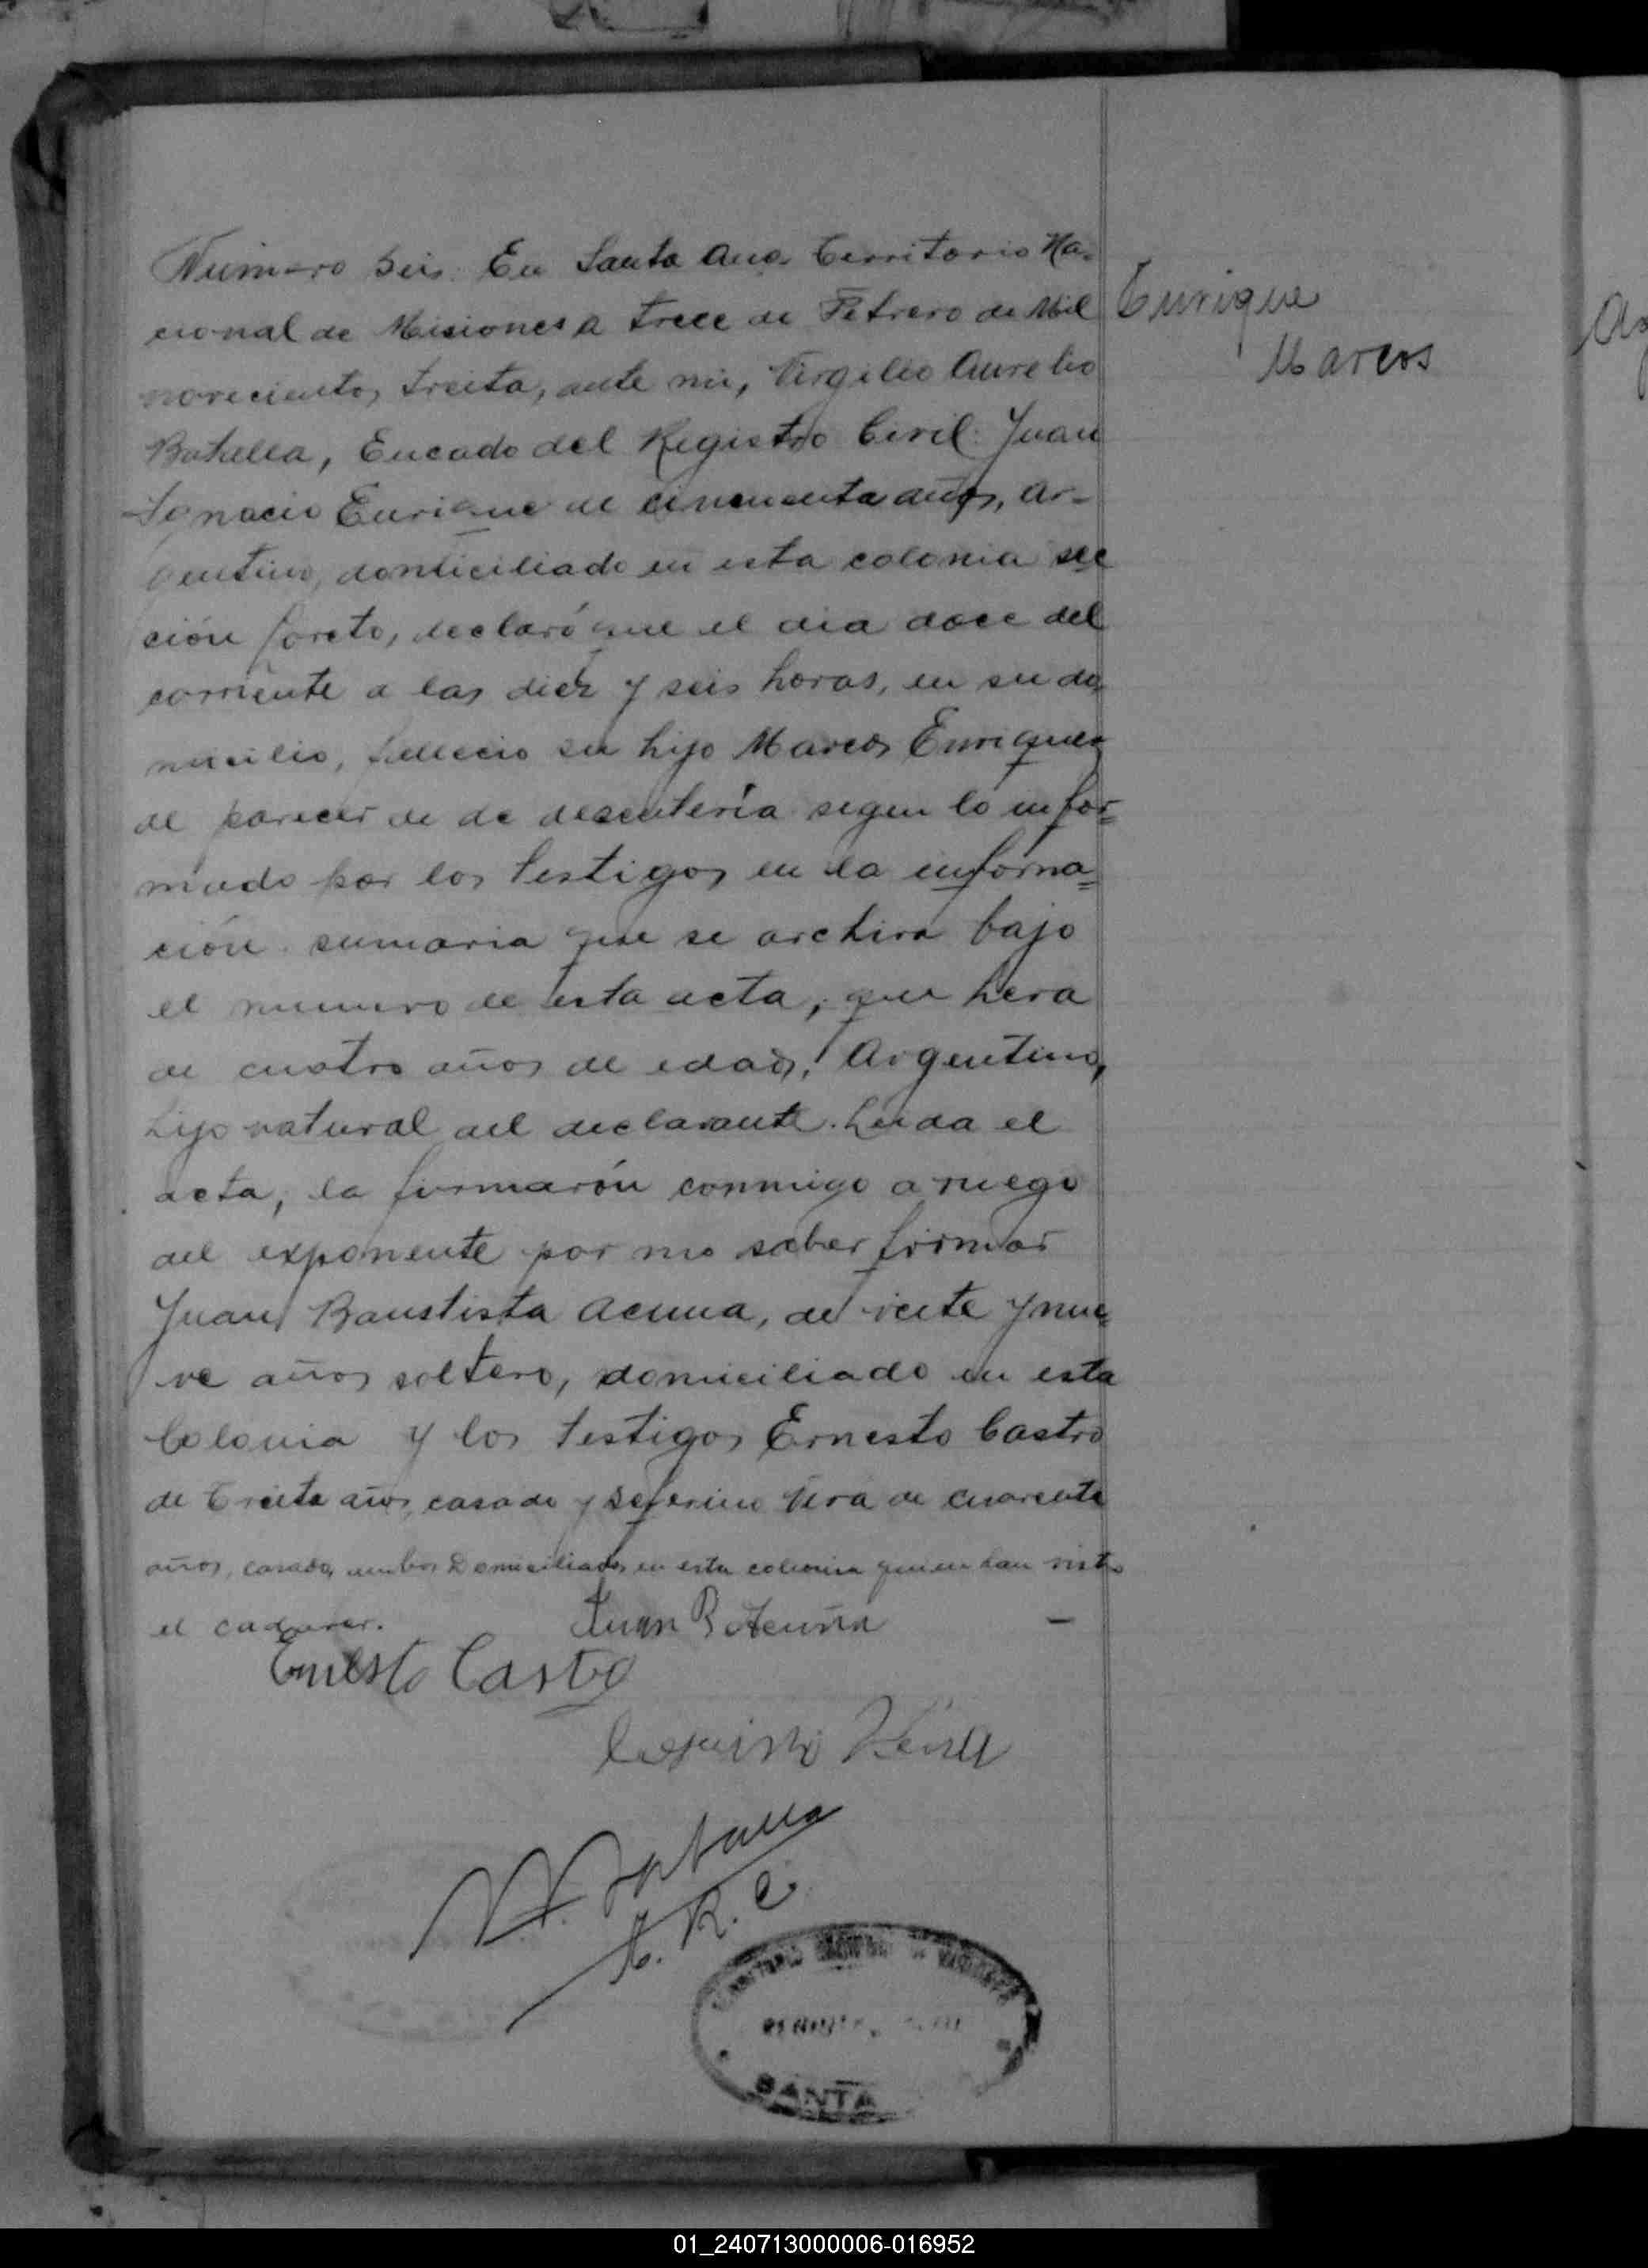 Número Seis. En Santa Ana Territorio Na-
cional de Misiones a trece de Febrero de Mil
novecientos treita, ante mi, Virgilio Aurelio
Batalla, Encado del Registro Civil: Juan
Ignacio Enrique de cincuenta años, ar-
gentino, domiciliado en esta colonia sec
ción Loreto, declaró que el dia doce del
corriente a las diez y seis horas, en su do-
micilio, fallecio su hijo Marcos Enrique
al parecer de de desenteria segun lo infor=
mado por los testigos en la informa=
ción sumaria que se archiva bajo
el numero de esta acta, que hera
de cuatro años de edad, Argentino,
hijo natural del declarante. Leida el
acta, la firmarón conmigo a ruego
del exponente por no saber firmar
Juan Baustista Acuna, de veite y nue-
ve años soltero, domiciliado en esta
Colonia y los testigos Ernesto Castro
de treita años, casado y Seferino Vera de cuarenta
años, casado, ambos Domiciliados en esta colonia quienen han visto
el cadaver. Juan B Acuña
Ernesto Castro
Vera
V. A. Batalla
E. R. C.
SANTA
Enrique
Marcos
01_240713000006-016952